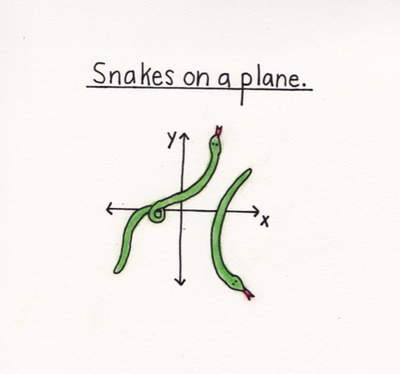 Snakes on a plane.
y
x